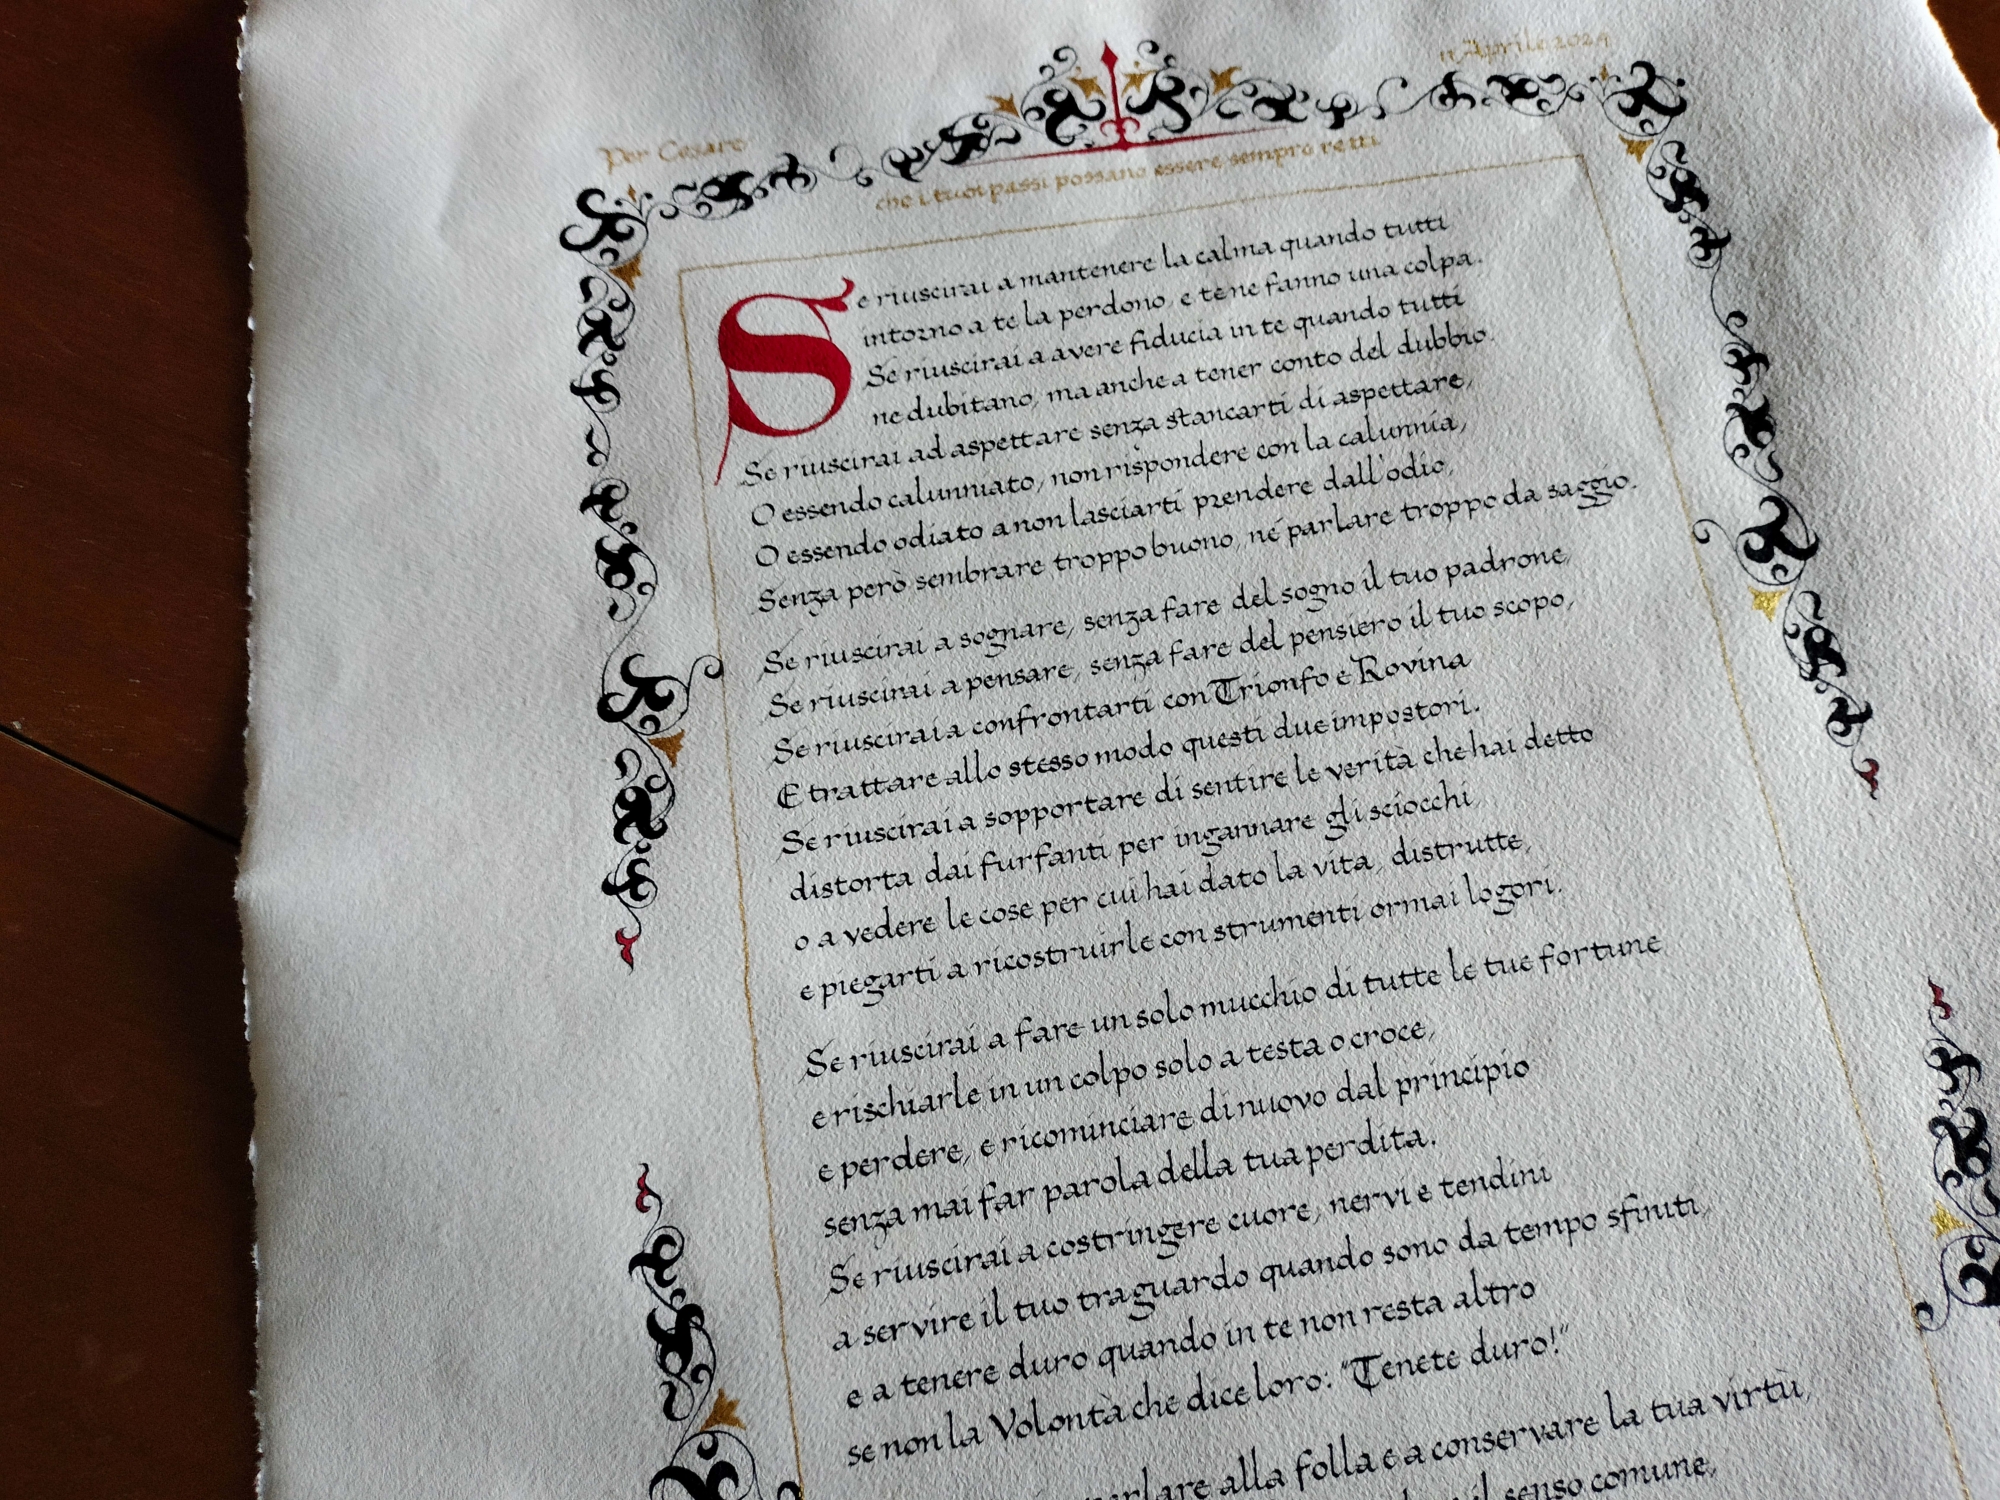 Per Cesare
11 Aprile 2024
che i tuoi passi possano essere sempre retti
Se riuscirai a mantenere la calma quando tutti
intorno a te la perdono, e te ne fanno una colpa.
Se riuscirai a avere fiducia in te quando tutti
ne dubitano, ma anche a tener conto del dubbio.
Se riuscirai ad aspettare senza stancarti di aspettare,
O essendo calunniato, non rispondere con la calunnia,
O essendo odiato a non lasciarti prendere dall'odio,
Senza però sembrare troppo buono, né parlare troppo da saggio.
Se riuscirai a sognare, senza fare del sogno il tuo padrone,
Se riuscirai a pensare, senza fare del pensiero il tuo scopo,
Se riuscirai a confrontarti con Trionfo e Rovina
E trattare allo stesso modo questi due impostori.
Se riuscirai a sopportare di sentire le verità che hai detto
distorta dai furfanti per ingannare gli sciocchi,
o a vedere le cose per cui hai dato la vita, distrutte,
e piegarti a ricostruirle con strumenti ormai logori.
Se riuscirai a fare un solo mucchio di tutte le tue fortune
e rischiarle in un colpo solo a testa o croce,
e perdere, e ricominciare di nuovo dal principio
senza mai far parola della tua perdita.
Se riuscirai a costringere cuore, nervi e tendini
a servire il tuo traguardo quando sono da tempo sfiniti,
e a tenere duro quando in te non resta altro
se non la Volontà che dice loro: "Tenete duro!"
parlare alla folla e a conservare la tua virtù,
il senso comune,